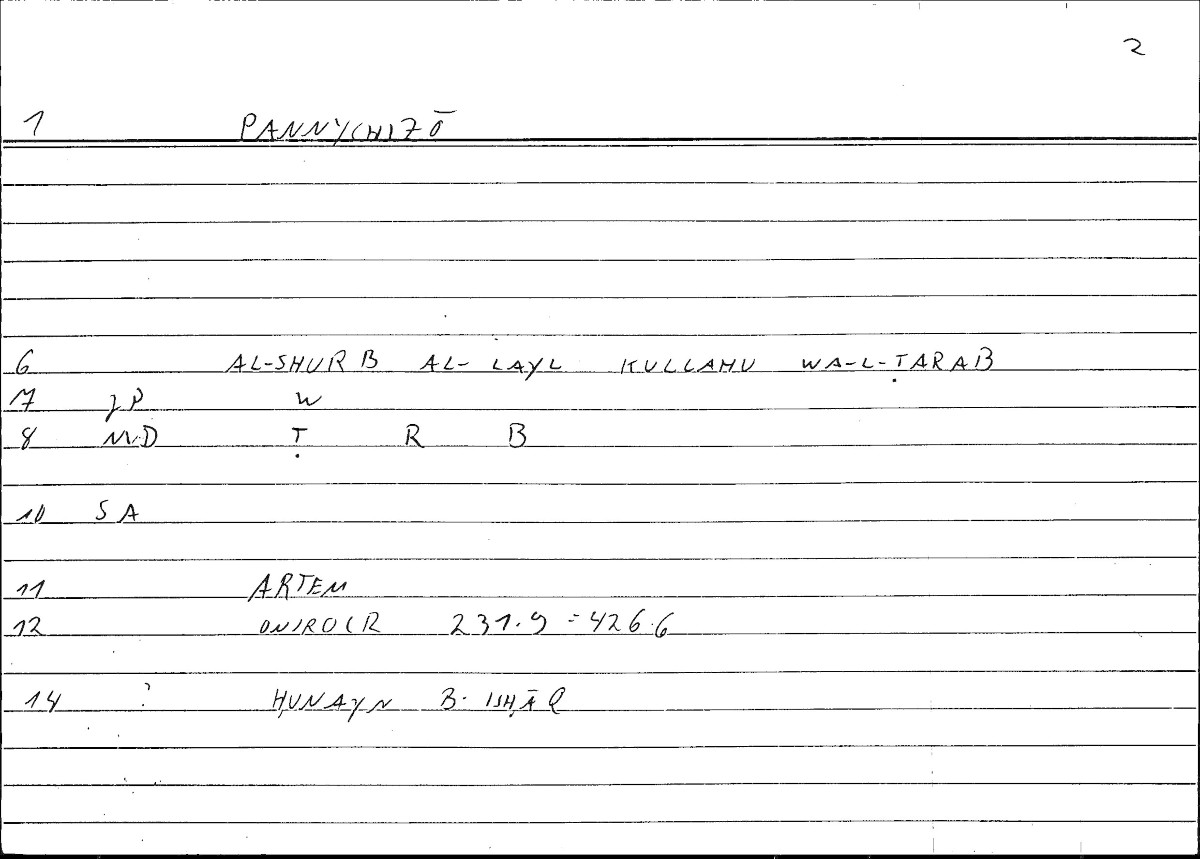 2
1 PANNYCHIZŌ
6 AL-SHURB AL-LAYL KULLAHU WA-L-ṬARAB
7 JP W
8 MD Ṭ R B
10 SA
11 ARTEM
12 ONIROCR 231.9 = 426.6
14 ? ḤUNAYN B. ISḤĀQ